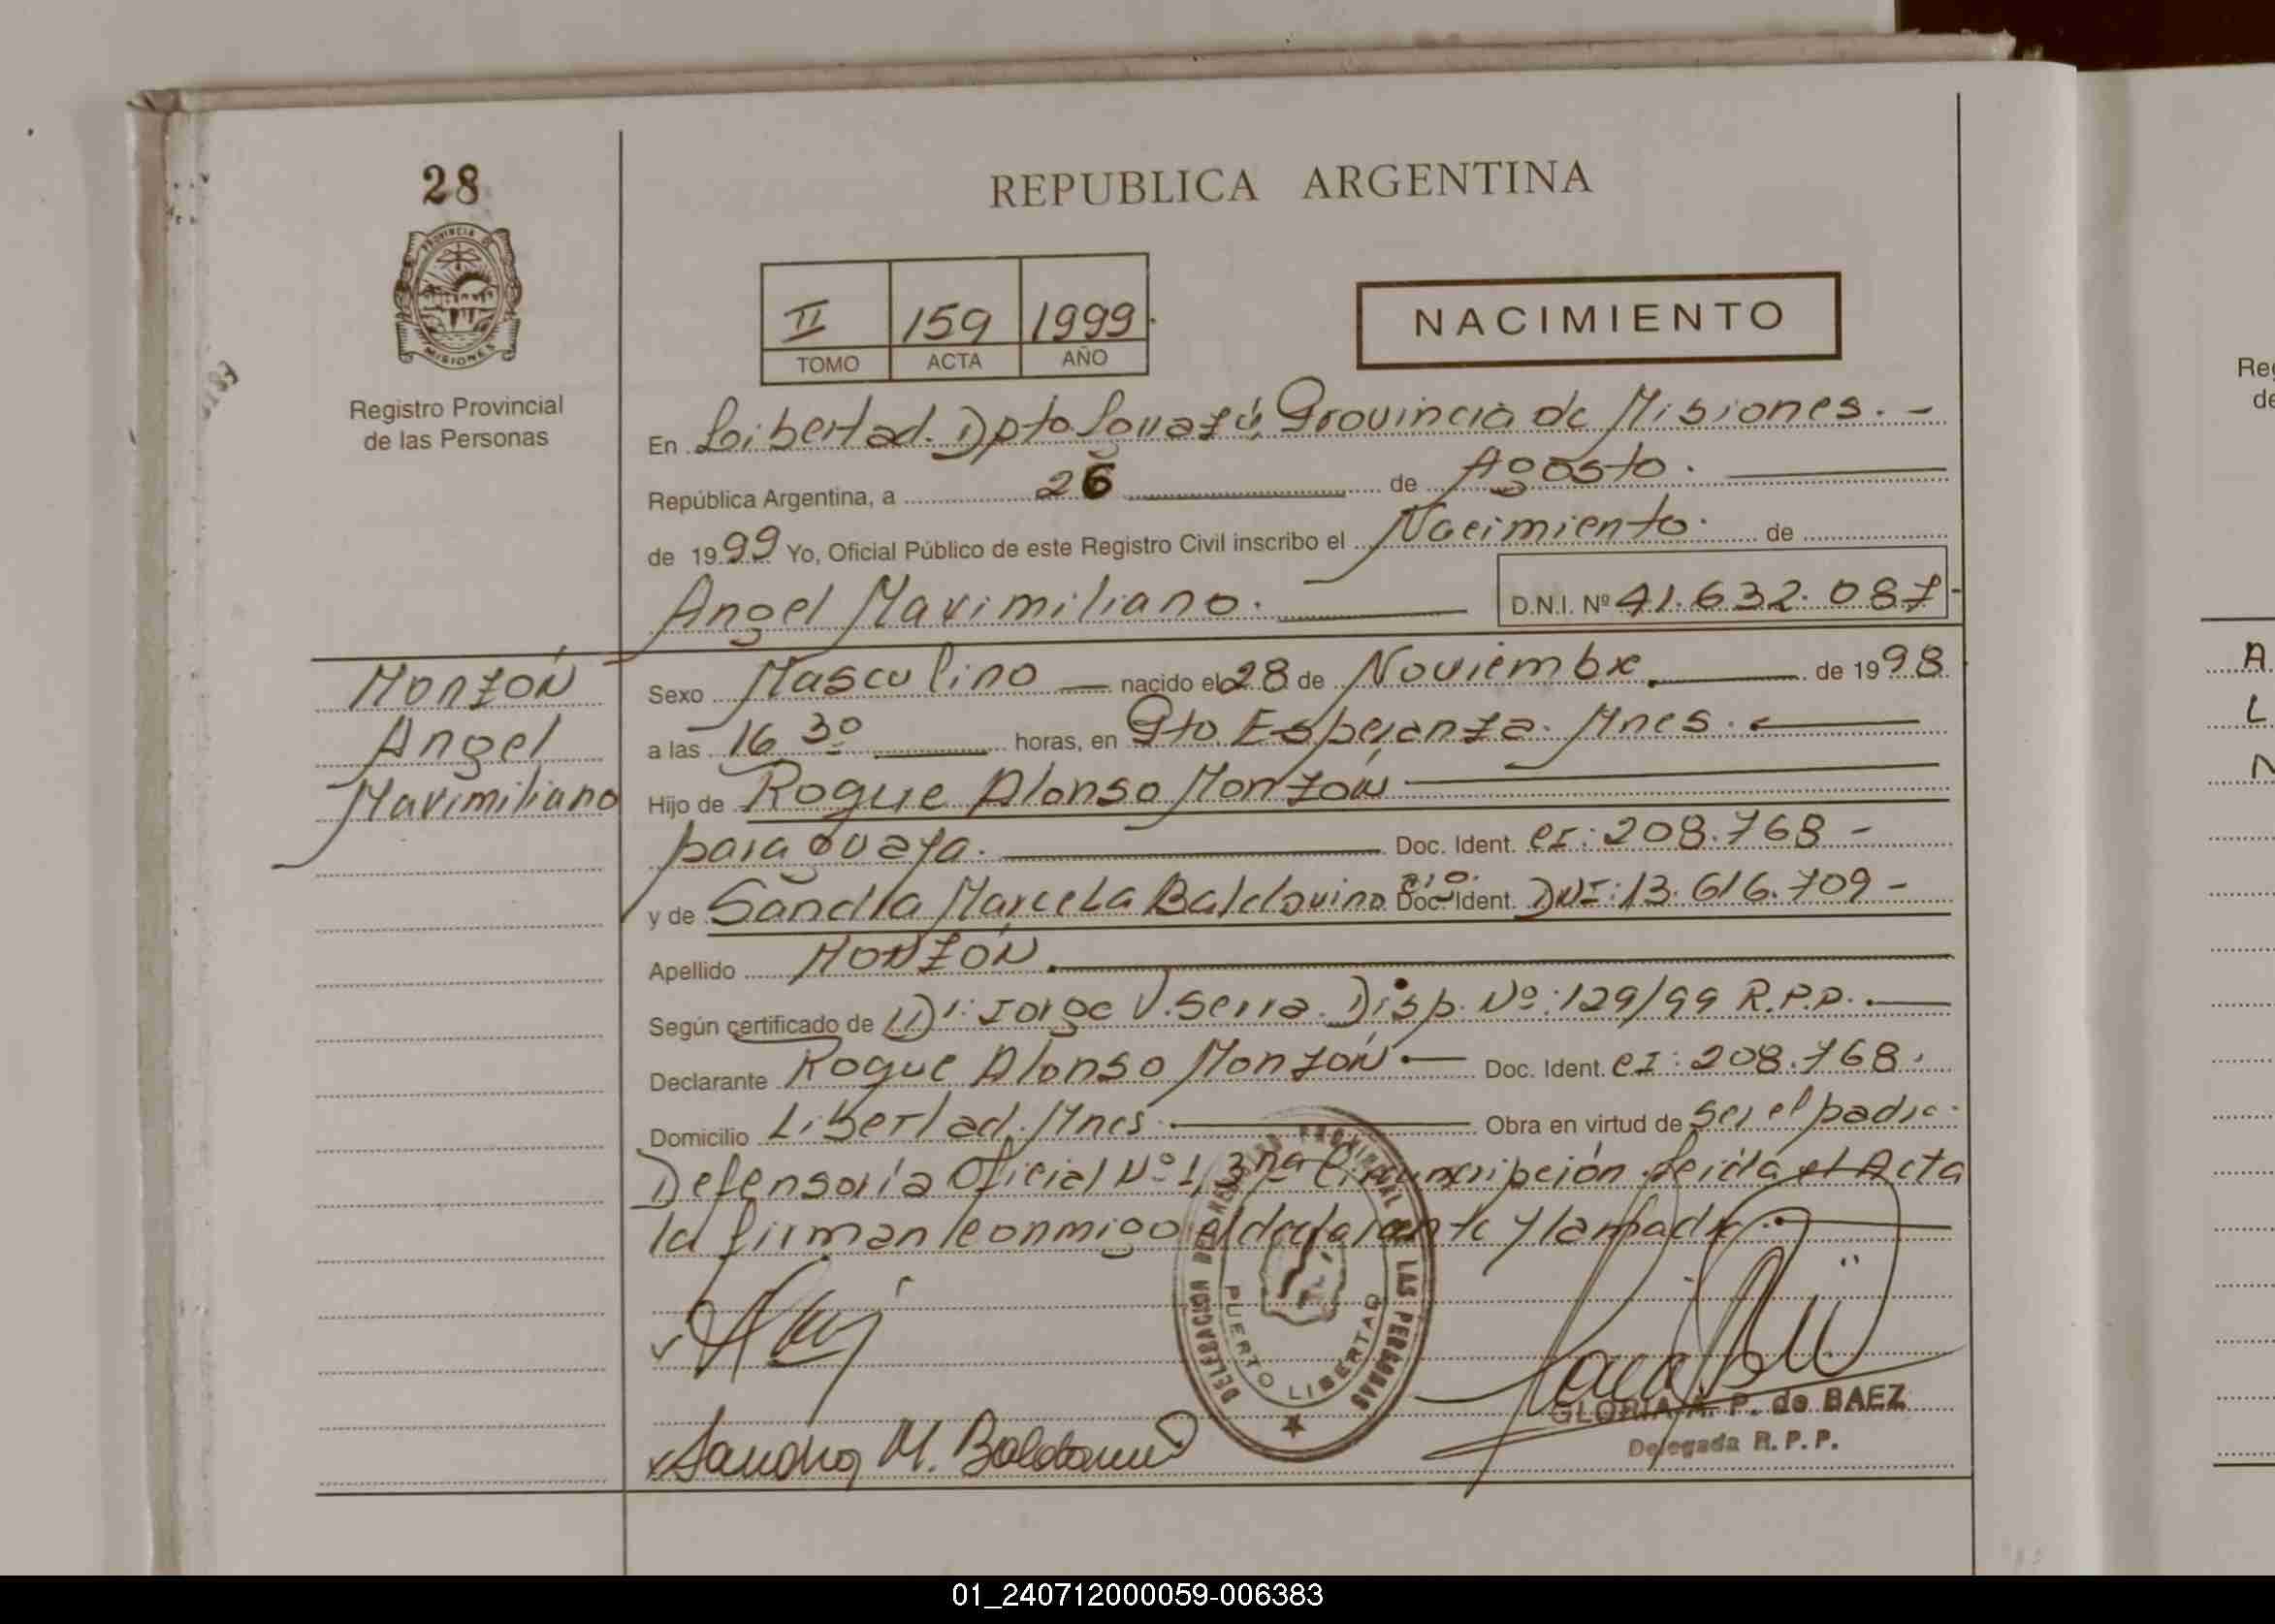 28
PROVINCIA DE
MISIONES
Registro Provincial
de las Personas
REPUBLICA ARGENTINA
II 159 1999.
TOMO ACTA AÑO
NACIMIENTO
En Libertad. Dpto Iguazú, Provincia de Misiones. -
República Argentina, a 26 de Agosto.
de 1999 Yo, Oficial Público de este Registro Civil inscribo el Nacimiento. de
Angel Maximiliano. D.N.I. Nº 41.632.087-
Monzón
Angel
Maximiliano
Sexo Masculino nacido el 28 de Noviembre. de 1998
a las 16 30 horas, en Pto Esperanza. Mnes.
Hijo de Roque Alonso Monzón
paraguaya. Doc. Ident. CI: 208.768 -
y de Sandra Marcela Baldovino Doc. Ident. DNI: 13.616.709 -
Apellido MONZÓN.
Según certificado de Dr. Jorge V. Serra. Disp. Nº: 129/99 R.P.P.
Declarante Roque Alonso Monzón Doc. Ident. CI: 208.768.
Domicilio Libertad. Mnes. Obra en virtud de Ser el padre.
Defensoría Oficial Nº 1, 3ra Circunscripción. Leída el Acta
la firman conmigo el declarante y la madre.
DELEGACION DEL REGISTRO PROVINCIAL DE LAS PERSONAS
PUERTO LIBERTAD
Sandra M. Baldovino
GLORIA A. P. de BAEZ
Delegada R. P. P.
Reg
de
A
L
01_240712000059-006383